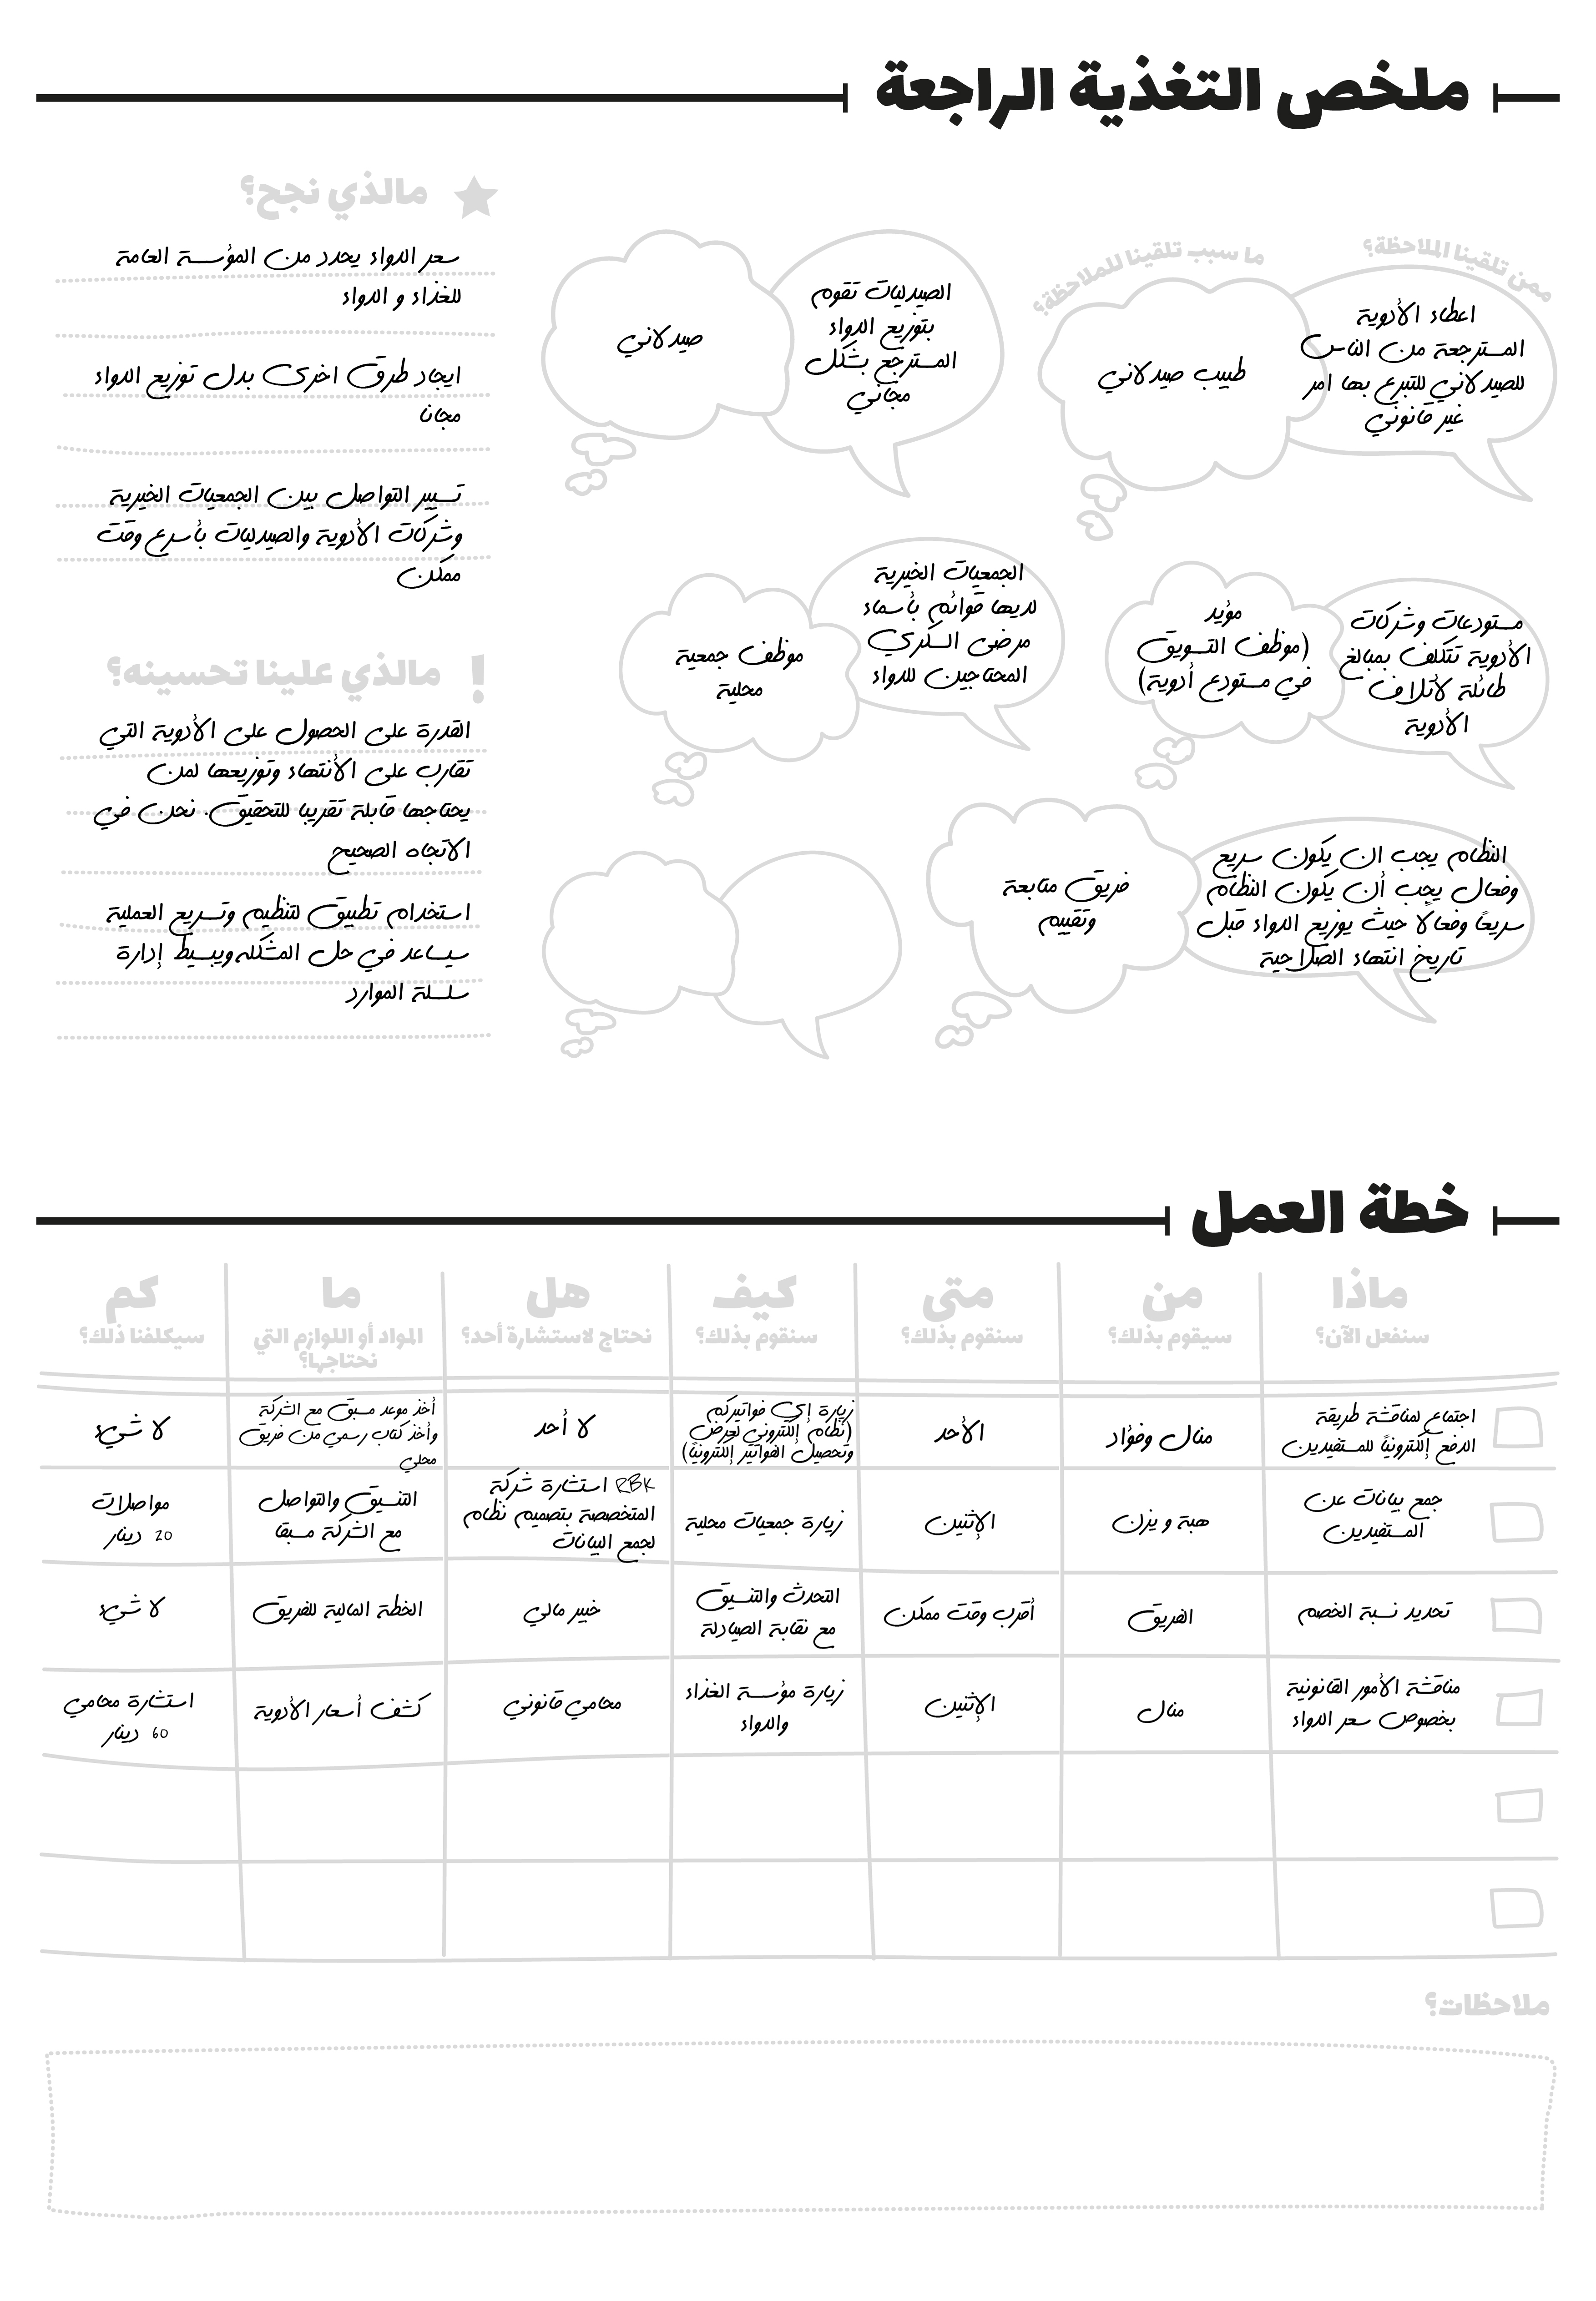 ملخص التغذية الراجعة
ممن تلقينا الملاحظة؟
ما سبب تلقينا للملاحظة؟
اعطاء الأدوية
المسترجعة من الناس
للصيدلاني للتبرع بها امر
غير قانوني
طبيب صيدلاني
الصيدليات تقوم
بتوزيع الدواء
المسترجع بشكل
مجاني
صيدلاني
مستودعات وشركات
الأدوية تتكلف بمبالغ
طائلة لأتلاف
الأدوية
مؤيد
(موظف التسويق
في مستودع أدوية)
الجمعيات الخيرية
لديها قوائم بأسماء
مرضى السكري
المحتاجين للدواء
موظف جمعية
محلية
النظام يجب ان يكون سريع
وفعال يجب أن يكون النظام
سريعًا وفعالا حيث يوزيع الدواء قبل
تاريخ انتهاء الصلاحية
فريق متابعة
وتقييم
مالذي نجح؟
سعر الدواء يحدد من المؤسسة العامة
للغذاء و الدواء
ايجاد طرق اخرى بدل توزيع الدواء
مجانا
تسيير التواصل بين الجمعيات الخيرية
وشركات الأدوية والصيدليات بأسرع وقت
ممكن
! مالذي علينا تحسينه؟
القدرة على الحصول على الأدوية التي
تقارب على الأنتهاء وتوزيعها لمن
يحتاجها قابلة تقريبا للتحقيق. نحن في
الاتجاه الصحيح
استخدام تطبيق لتنظيم وتسريع العملية
سيساعد في حل المشكله ويبسيط إدارة
سلسلة الموارد
خطة العمل
ماذا
سنفعل الآن؟
من
سيقوم بذلك؟
متى
سنقوم بذلك؟
كيف
سنقوم بذلك؟
هل
نحتاج لاستشارة أحد؟
ما
المواد أو اللوازم التي
نحتاجها؟
كم
سيكلفنا ذلك؟
اجتماع لمناقشة طريقة
الدفع إلكترونيًا للمستفيدين
منال وفؤاد
الأحد
زيارة إي فواتيركم
(نظام إلكتروني لعرض
وتحصيل الفواتير إلكترونيًا)
لا أحد
أخذ موعد مسبق مع الشركة
وأخذ كتاب رسمي من فريق
محلي
لا شيء
جمع بيانات عن
المستفيدين
هبة و يزن
الإثنين
زيارة جمعيات محلية
RBK استشارة شركة
المتخصصة بتصميم نظام
لجمع البيانات
التنسيق والتواصل
مع الشركة مسبقا
مواصلات
20 دينار
تحديد نسبة الخصم
الفريق
أقرب وقت ممكن
التحدث والتنسيق
مع نقابة الصيادلة
خبير مالي
الخطة المالية للفريق
لا شيء
مناقشة الأمور القانونية
بخصوص سعر الدواء
منال
الإثنين
زيارة مؤسسة الغذاء
والدواء
محامي قانوني
كشف أسعار الأدوية
استشارة محامي
60 دينار
ملاحظات؟